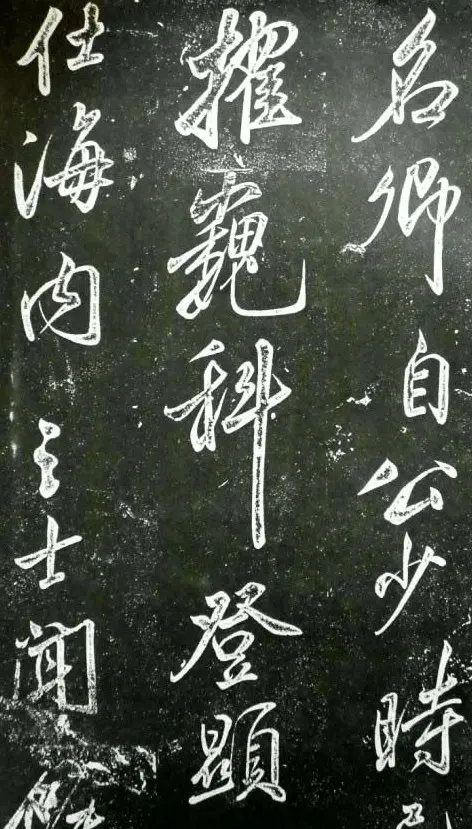 名卿自公少時
擢巍科登顯
仕海内之士聞